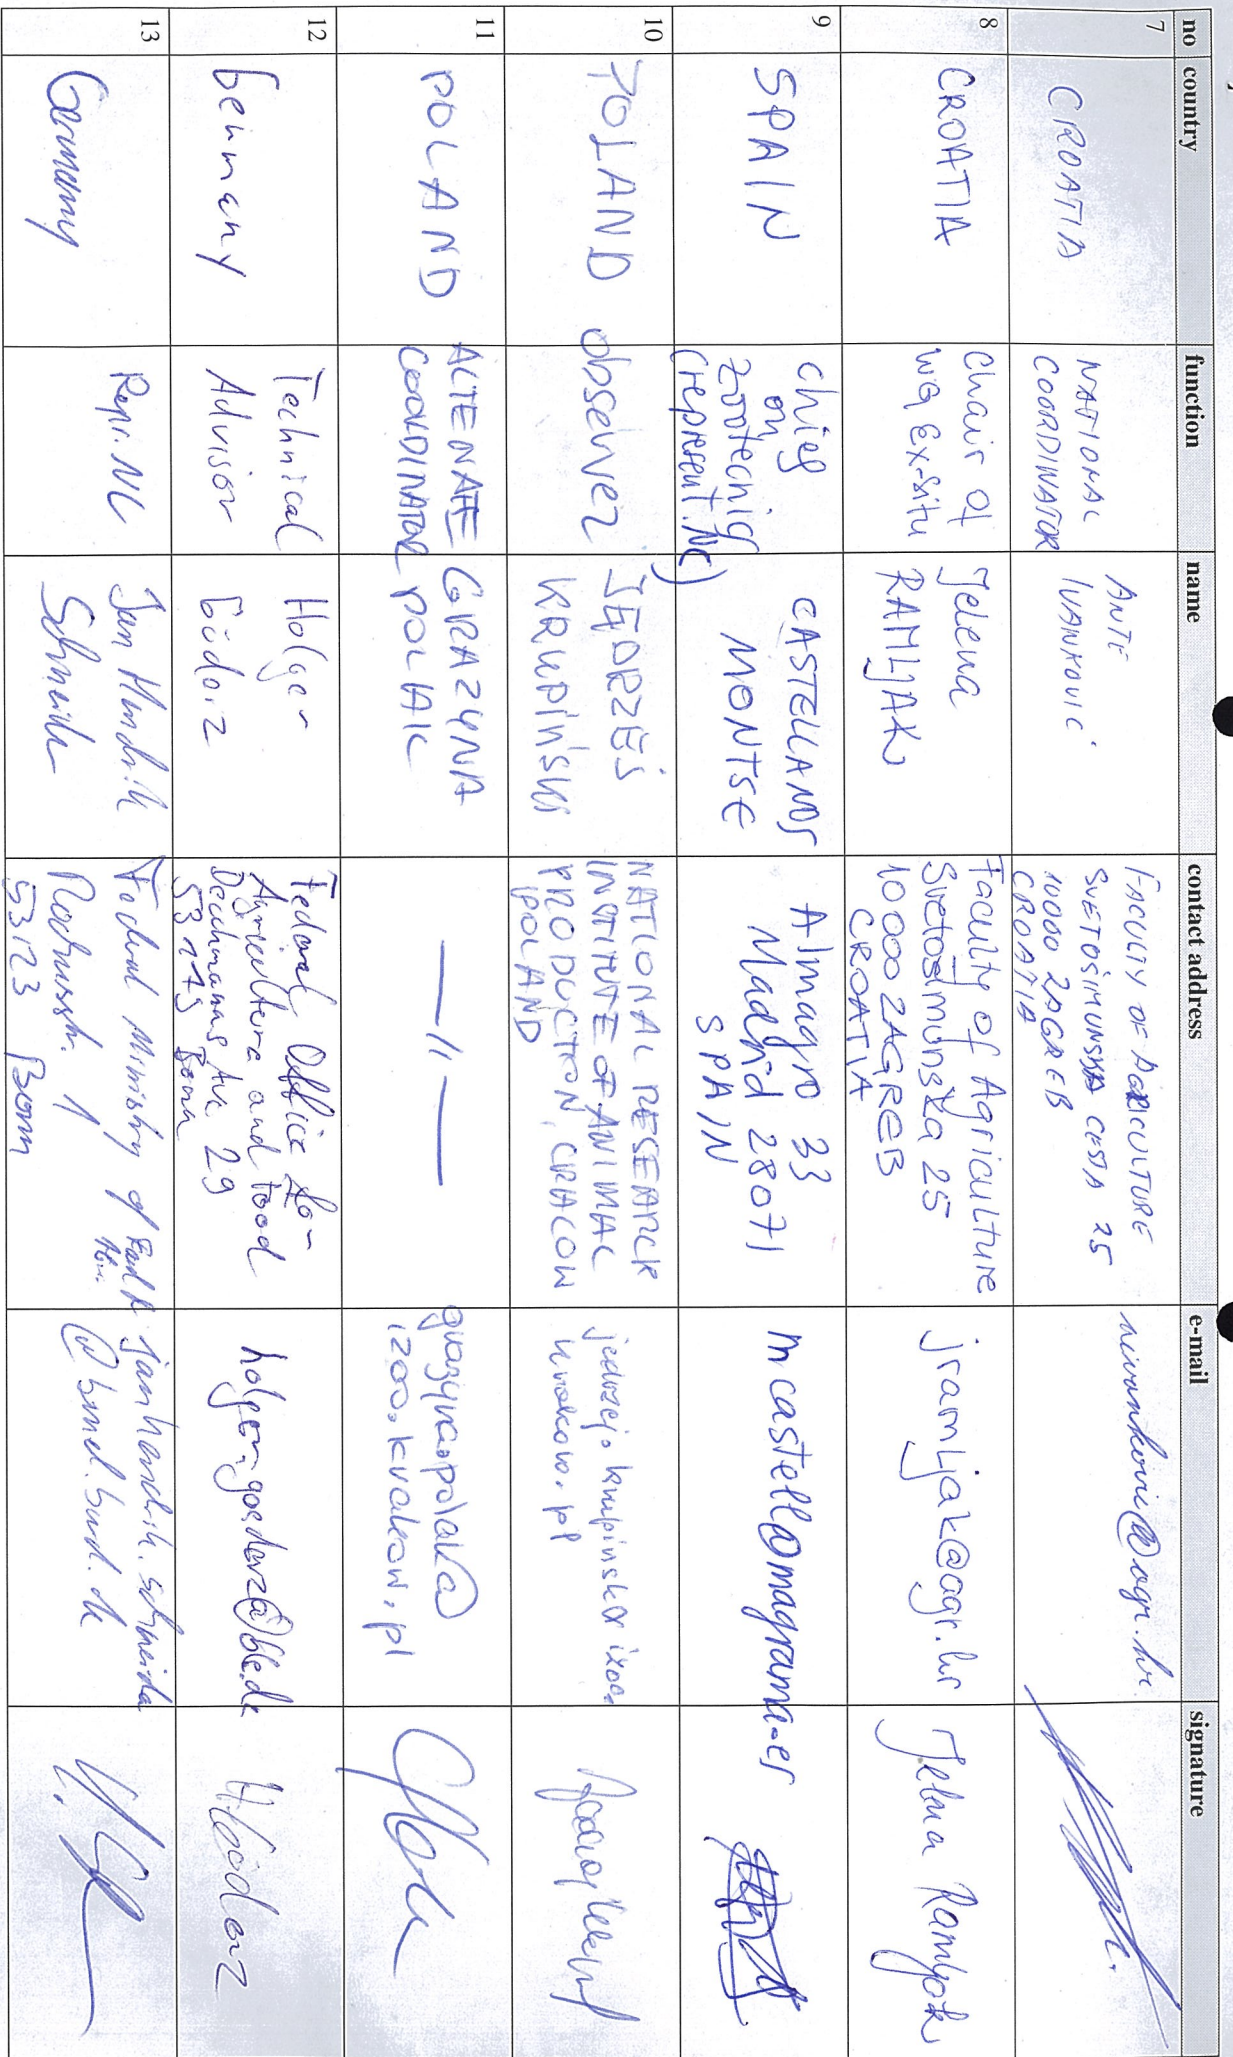 no country function name contact address e-mail signature
7 CROATIA
NATIONAL
COORDINATOR
ANTE
IVANKOVIĆ
FACULTY OF AGRICULTURE
SVETOŠIMUNSKA CESTA 25
10000 ZAGREB
CROATIA
8 CROATIA
Chair of
WG Ex-situ
Jelena
RAMLJAK
Faculty of Agriculture
Svetošimunska 25
10000 ZAGREB
CROATIA
jramljak@agr.hr
Jelena Ramljak
9 SPAIN
Chief
on
zootecnig
(represent. NC)
CASTELLANOS
MONTSE
Almagro 33
Madrid 28071
SPAIN
mcastell@magrama.es
10 POLAND
observer
JĘDRZEJ
KRUPIŃSKI
NATIONAL RESEARCH
INSTITUTE OF ANIMAL
PRODUCTION, CRACOW
POLAND
jedrzej.krupinski@izoo.
krakow.pl
11 POLAND
ALTENATE
COORDINATOR
GRAZYNA
POLAK
—//—
grazyna.polak@
izoo.krakow.pl
12 Germany
Technical
Advisor
Holger
Gödarz
Federal Office for
Agriculture and Food
Deichmanns Aue 29
53179 Bonn
holger.goedarz@ble.de
HGödarz
13 Germany
Repr. NC
Jan Hendrik
Schneider
Federal Ministry of
Rochusstr. 1
53123 Bonn
janhendrik.schneider
@bmel.bund.de